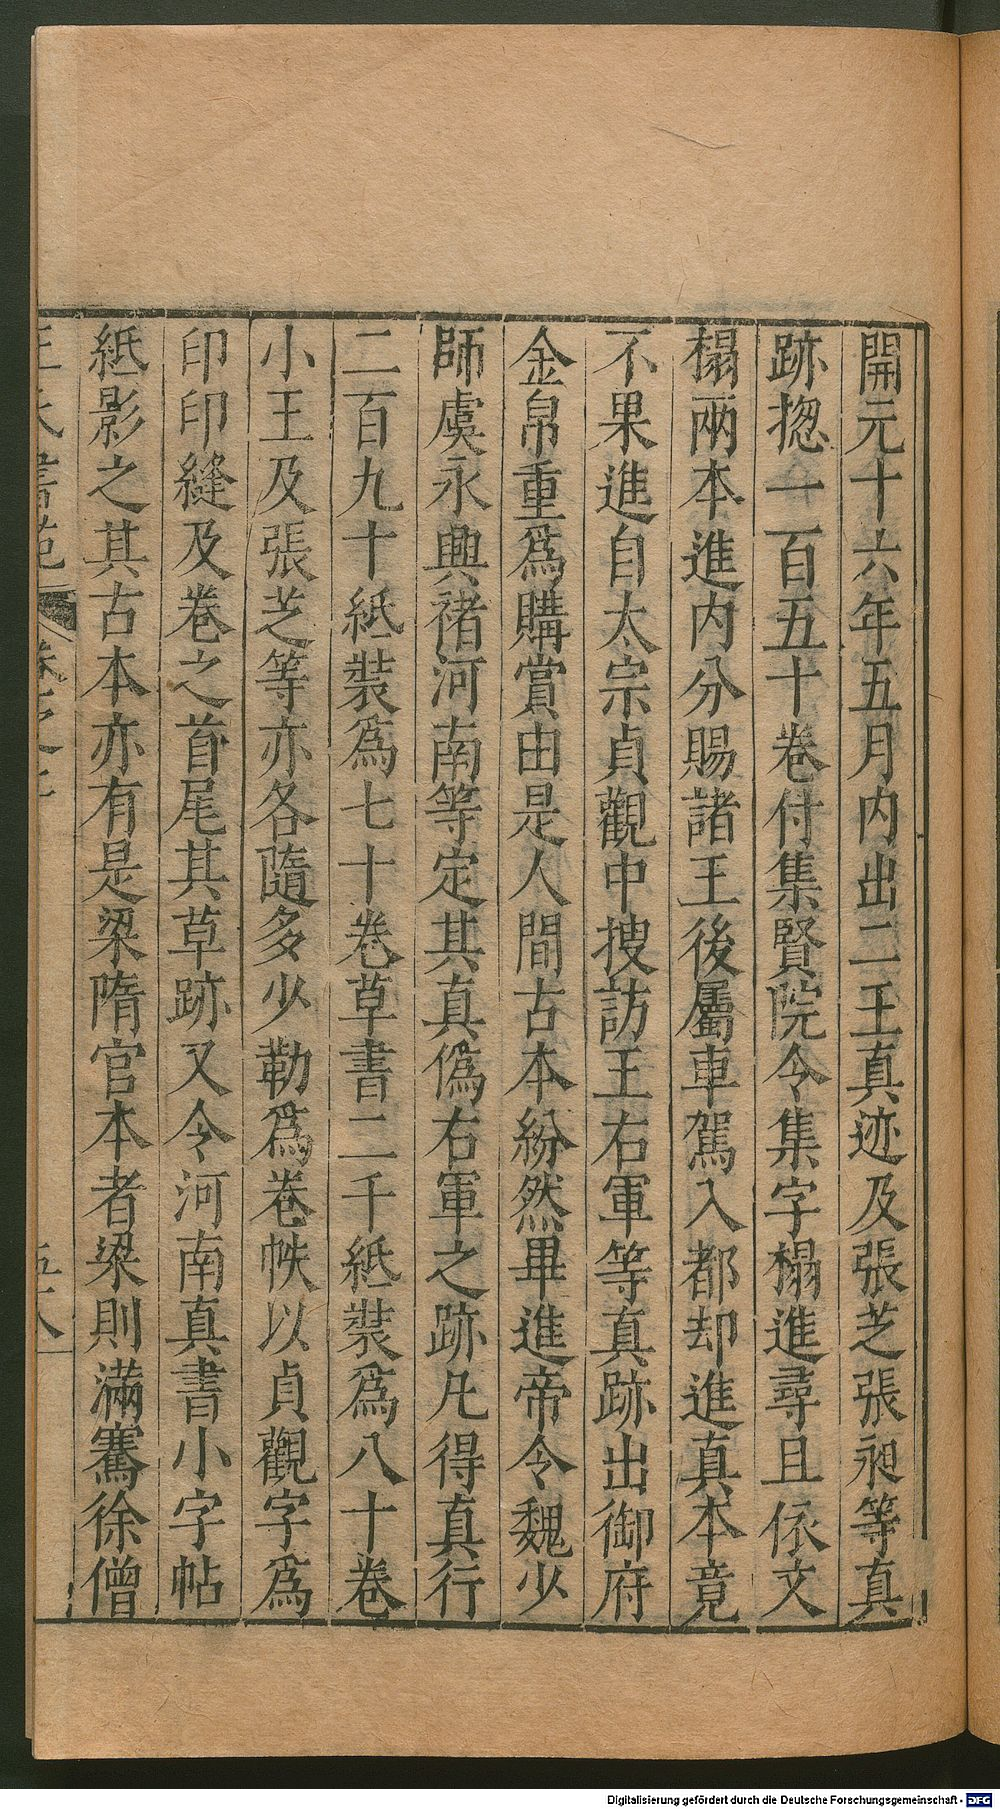 開元十六年五月内出二王真迹及張芝張昶等真
跡揔一百五十卷付集賢院令集字榻進尋且依文
榻兩本進内分賜諸王後屬車駕入都却進真本竟
不果進自太宗貞觀中捜訪王右軍等真跡出御府
金帛重爲購賞由是人間古本紛然畢進帝令魏少
師虞永興褚河南等定其真僞右軍之跡凡得真行
二百九十紙裝爲七十卷草書二千紙裝爲八十卷
小王及張芝等亦各隨多少勒爲卷帙以貞觀字爲
印印縫及卷之首尾其草跡又令河南真書小字帖
紙影之其古本亦有是梁隋官本者梁則滿騫徐僧
王氏書苑 卷之 五十八
Digitalisierung gefördert durch die Deutsche Forschungsgemeinschaft - DFG